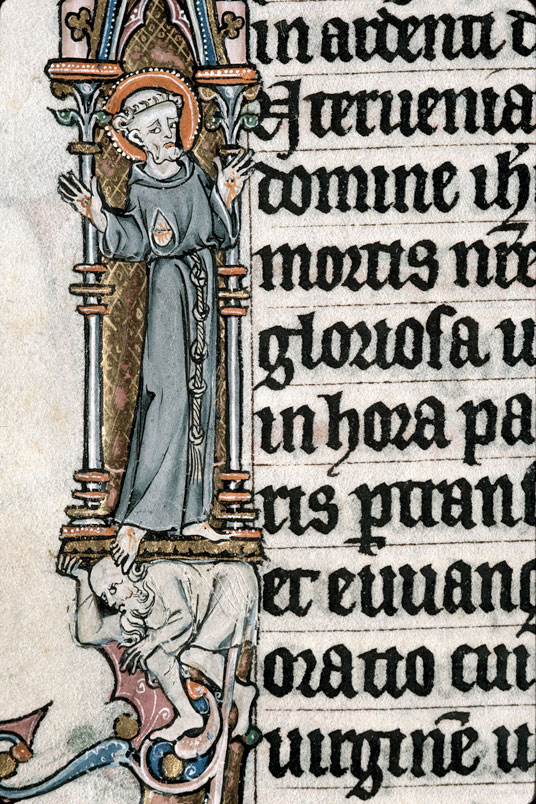 in ardenti d
A teruenia
domine ih
mortis nr̄e
gloriosa u
in hora pa
ris ꝑtrans
et euuang
oratio cui
uirginē u